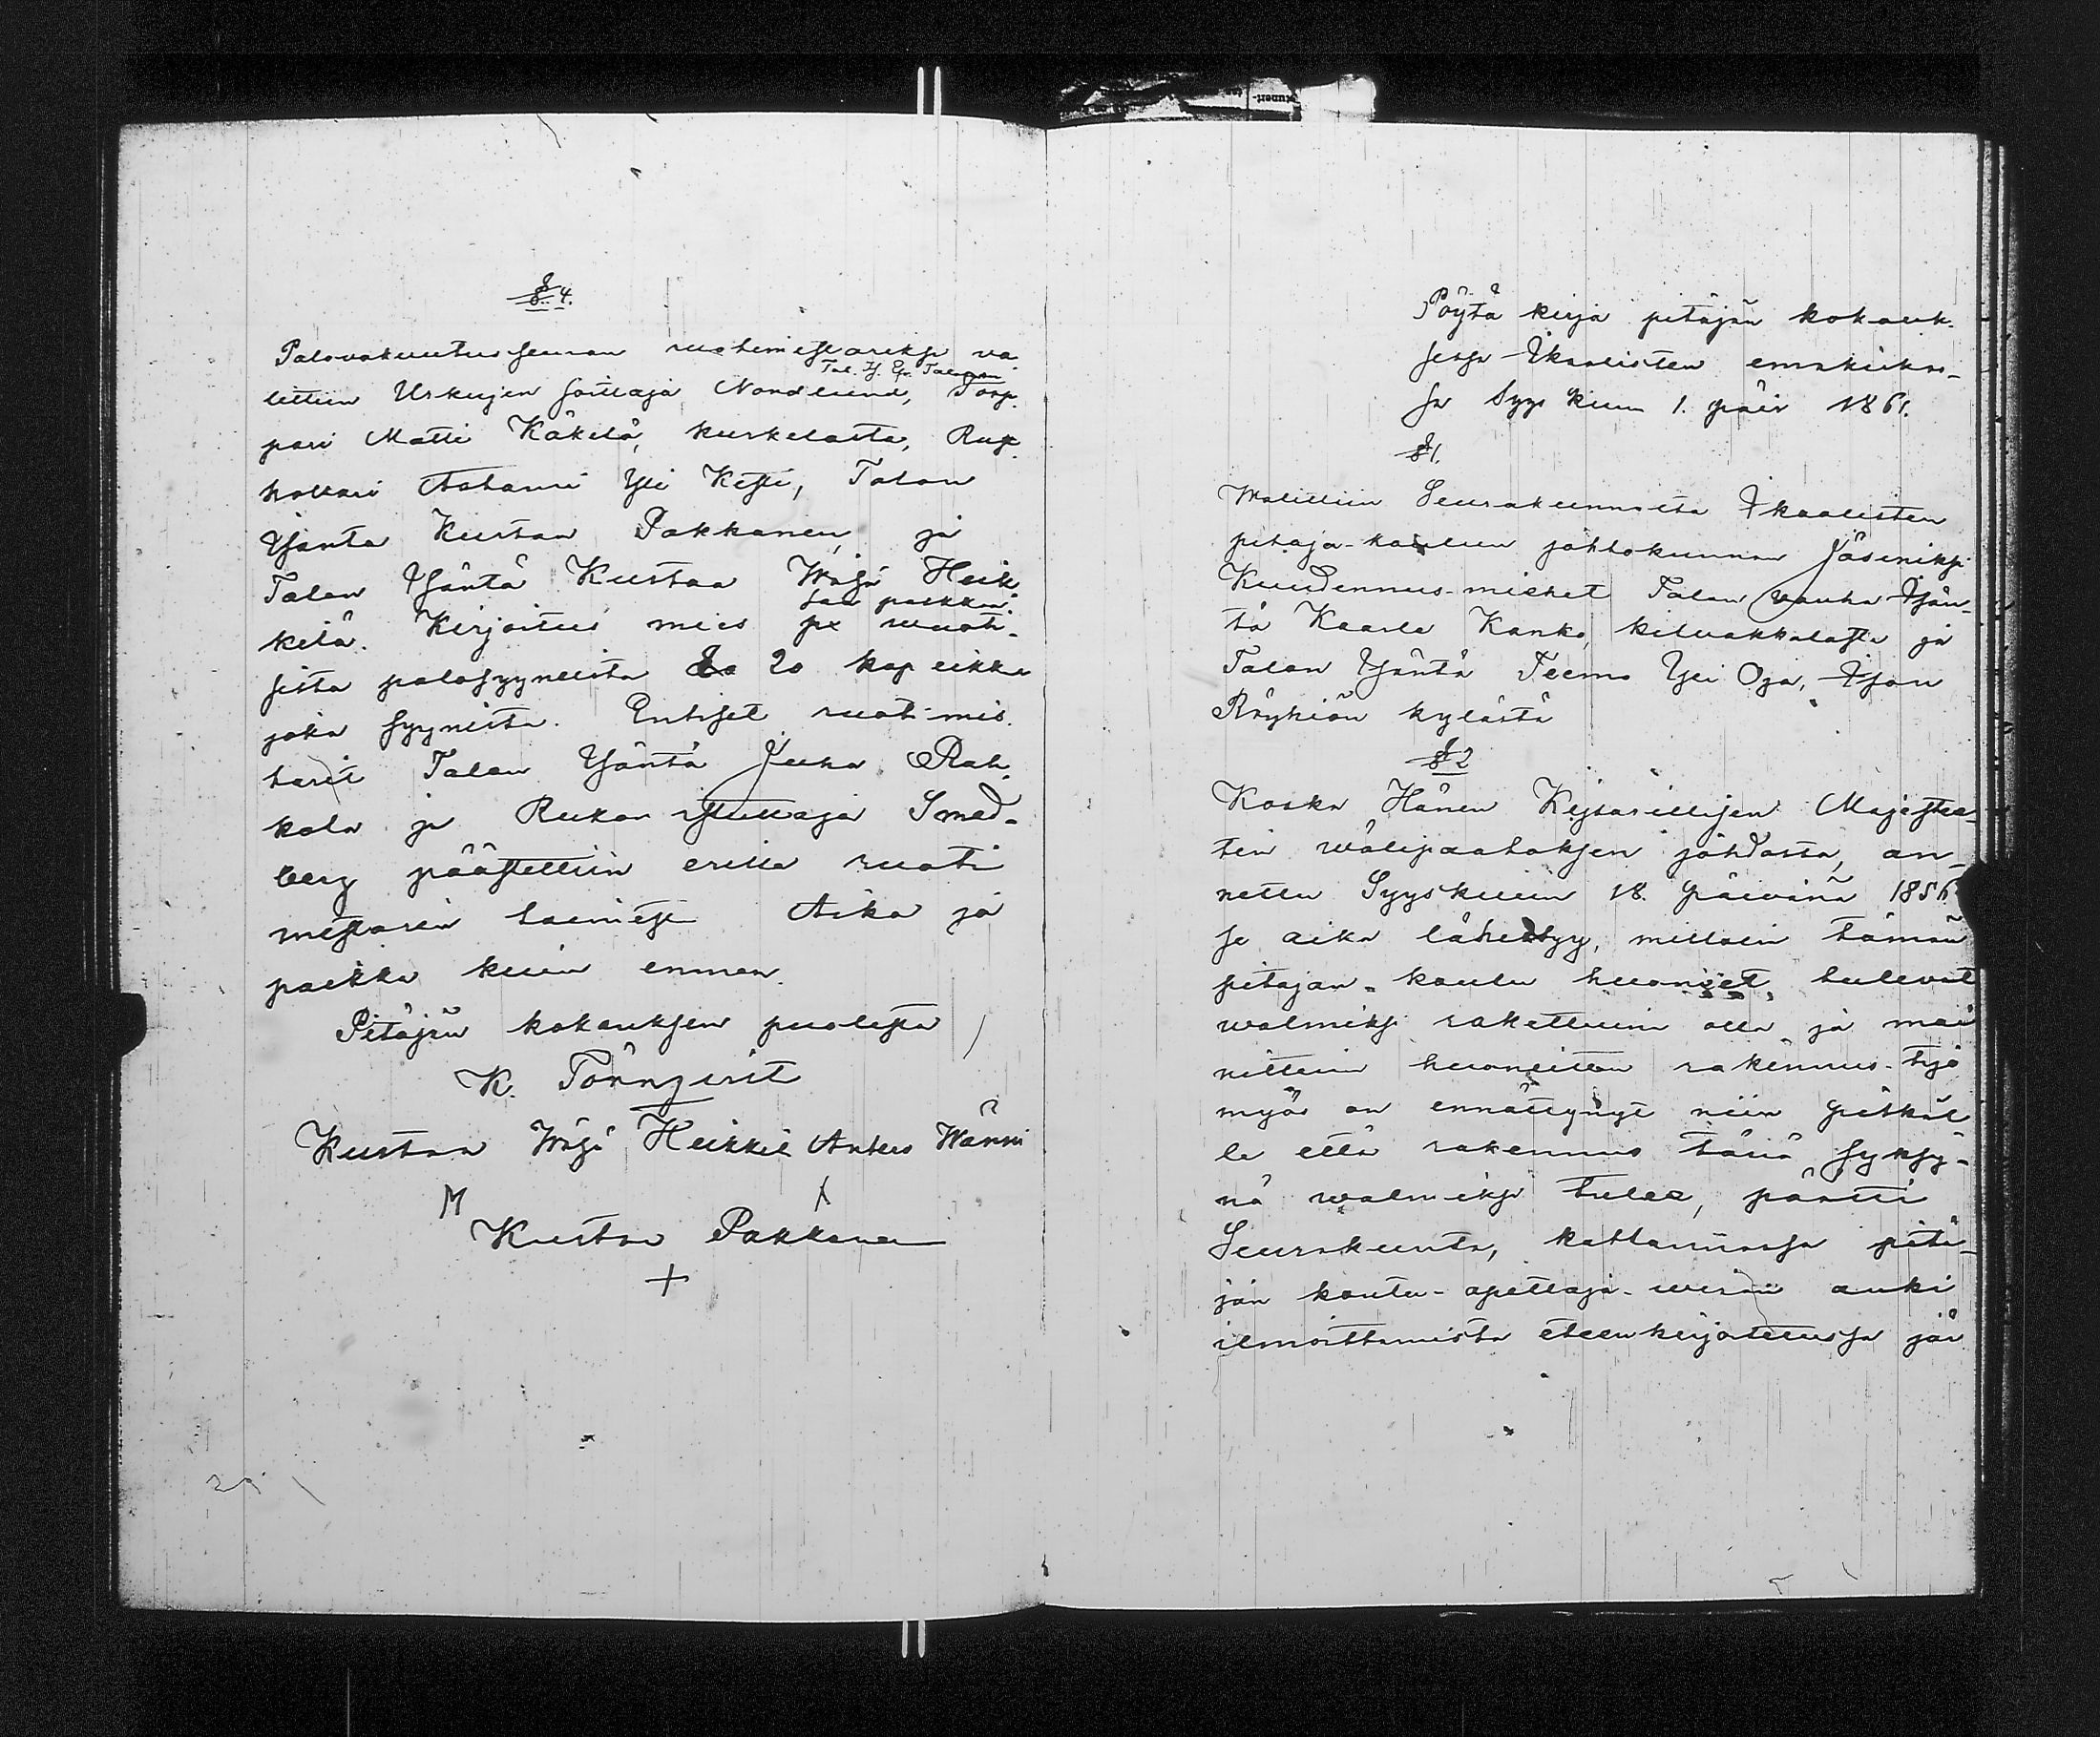 § 4.
Palovakuutusseuran ruotimestariksi va-
Tal. Is. Efr. Talonen
littiin Urkujen soittaja Nordlund, Torp-
pari Matti Käkelä, kurkelasta, Rup-
hollari Aatami Yli Kesti, Talon
Isäntä Kustaa Pakkanen, ja
Talon Isäntä Kustaa Wähä Heik-
kilä. Kirjoitus mies saa paikkan
sista palosyyneista 20 kopeikka
joka syynista. Entiset ruotimis-
tarit Talon Isäntä Juha Rah-
kola ja Rukon istuttaja Smed-
berg päästettiin erille ruoti
mestarin toimesta Aika ja
paikka kuin ennen.
Pitäjän kokouksen puolesta
K. Törnqvist
Kustaa Wähä Heikkilä Anters Wänni
Kustaa Pakkanen
+
Pöytä kirja pitäjän kokouk-
sesa Ikalisten emäkirkos-
sa Syys kuun 1. päiv 1861.
§ 1.
Walittiin Seurakunnalta Ikaalisten
pitäjä-koulun johtokunnan Jäseniksi
Kuudennus-miehet Talon vanha Isän-
tä Kaarle Kanko, kilvakkalasta ja
Talon Isäntä Teemo Yli Oja, Ison
Röyhiön kylästä
§ 2
Koska Hänen Keisarillisen Majestee-
tin wälipäätöksen johdosta, an-
nettu Syyskuun 18. päivänä 1856
se aika lähestyy, milloin tämän
pitäjän-koulu huoneet tulevat
walmiksi rakettuina olla ja mai-
nittuin huoneitten rakennus-työ
myös on ennättynyt niin pitkäl-
le että rakennus tänä syksy-
nä walmiksi tulee, päätti
Seurakunta, kattannassa pitä-
jän koulu-opettaja-wiran auki
ilmoittamista eteenkirjoitetussa jär